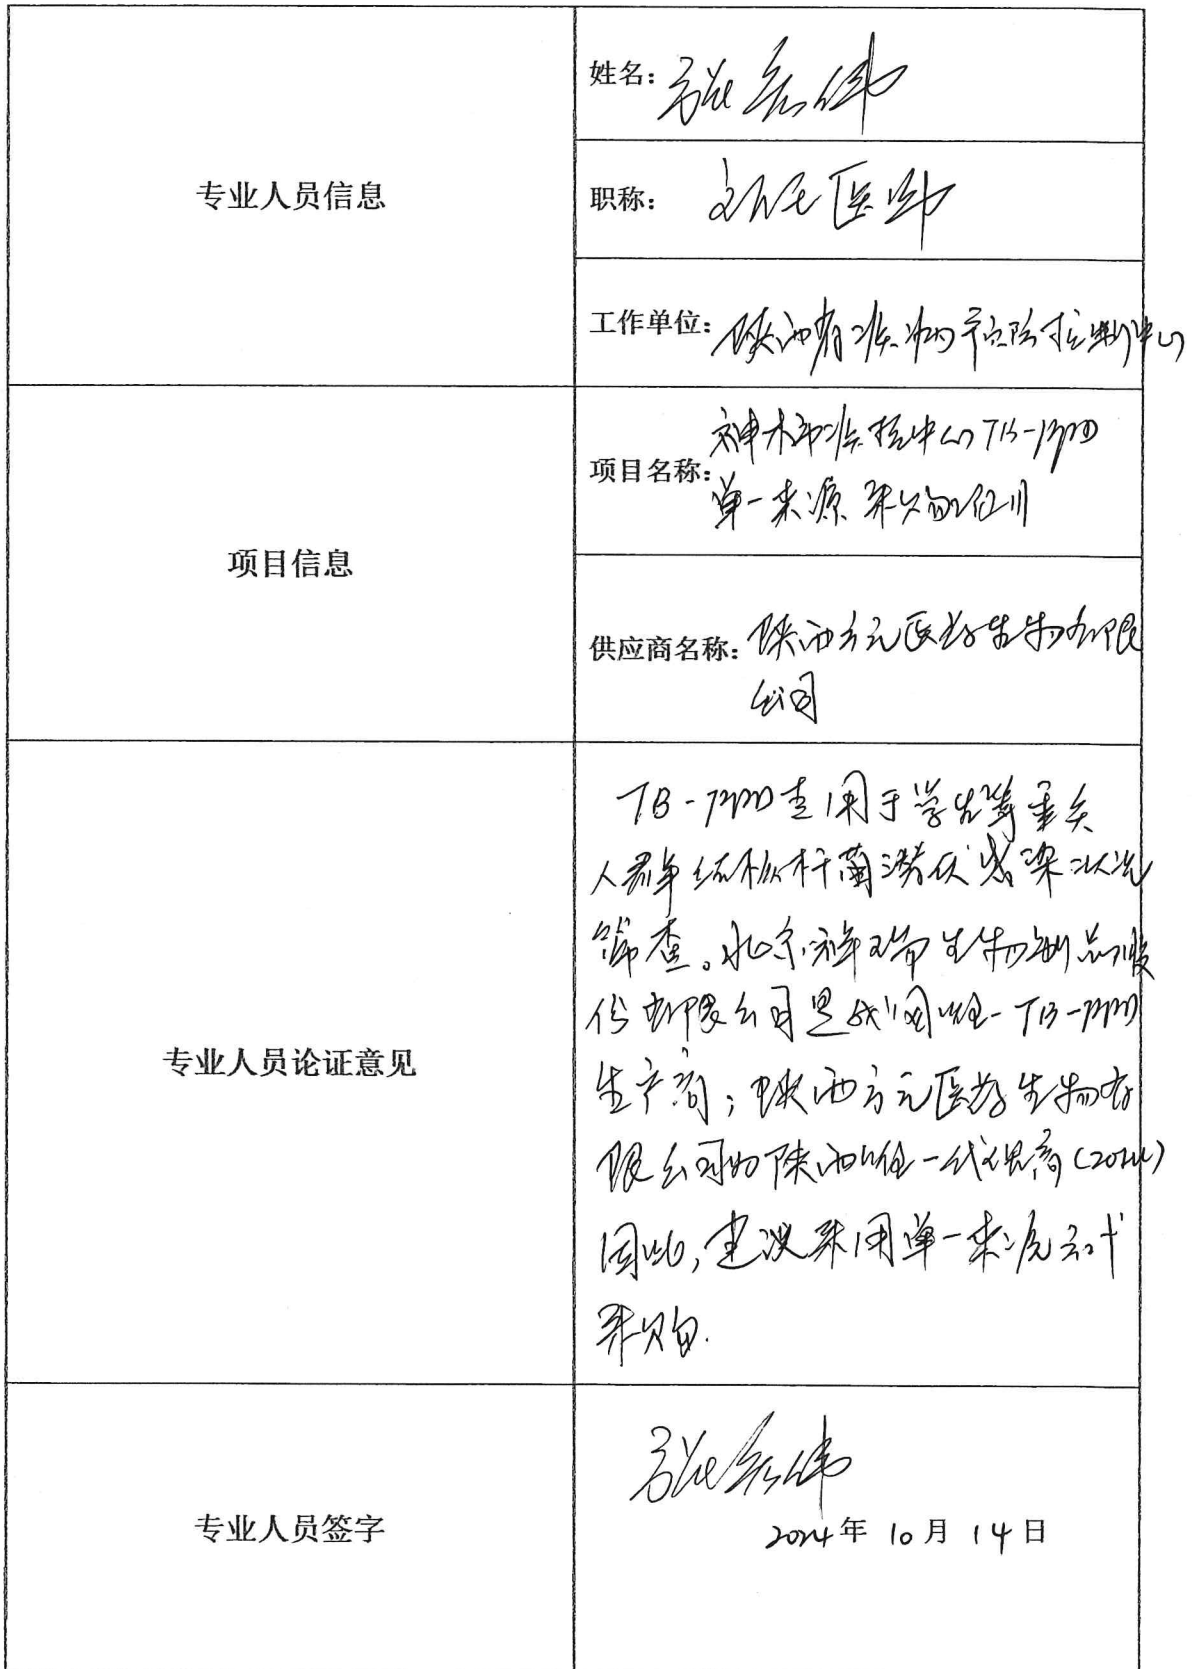 专业人员信息
姓名:
职称: 主任医师
工作单位: 陕西省疾病预防控制中心
项目信息
项目名称: 神木市疾控中心TB-PPD
单一来源采购论证
供应商名称: 陕西方元医药生物有限
公司
专业人员论证意见
TB-PPD主要用于学生等重点
人群结核杆菌潜伏感染状况
筛查。北京祥瑞生物制品股
份有限公司是我国唯一TB-PPD
生产商;陕西方元医药生物有
限公司为陕西唯一代理商(2024)
因此,建议采用单一来源方式
采购.
专业人员签字
2024年10月14日